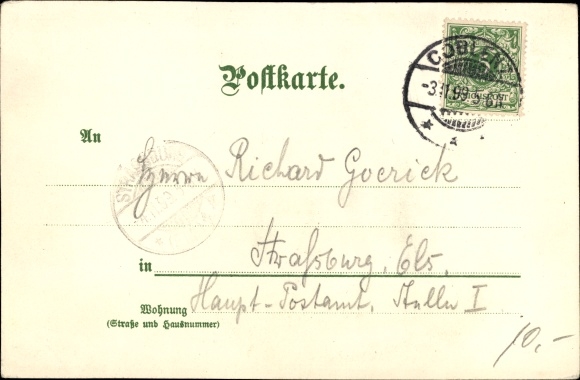 Postkarte.
COBLENZ
-3.11.99
An
Herrn Richard Goerick
STRASSBURG
in Straßburg, Els.
Haupt-Postamt, Stelle I
Wohnung
(Straße und Hausnummer)
10,-